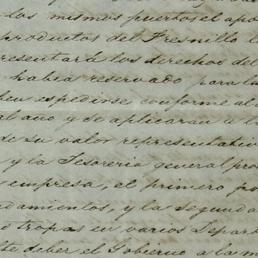 los mismos puertos el apo
productos del Fresnillo
resentará los derechos del
habia reservado para
espedirse conforme al
al año y de aplicarán a l
de su valor representativ
y la Tesoreria general pro
empresa, el primero po
damientos, y la segunda
tropas en varios Depar
te deber el Gobierno a la m